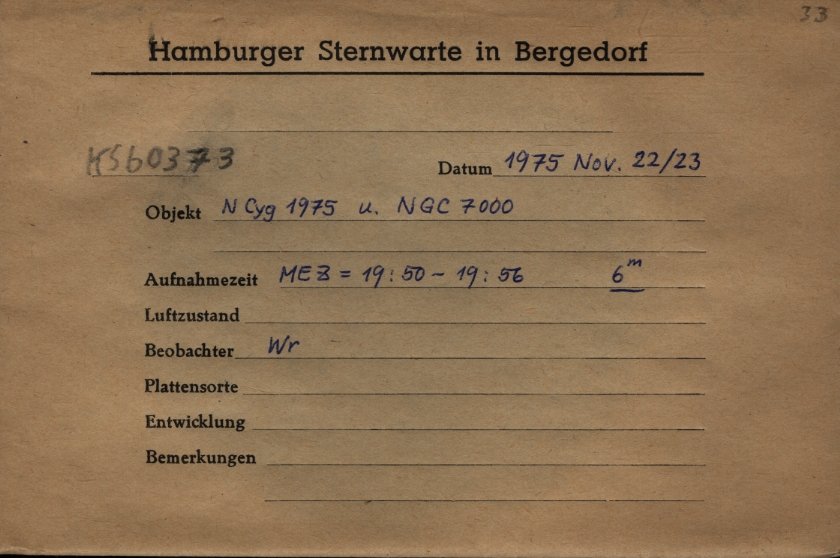 33
Hamburger Sternwarte in Bergedorf
KSb0373 Datum 1975 Nov. 22/23
Objekt N Cyg 1975 u. NGC 7000
Aufnahmezeit MEZ = 19:50 – 19:56 6ᵐ
Luftzustand
Beobachter Wr
Plattensorte
Entwicklung
Bemerkungen